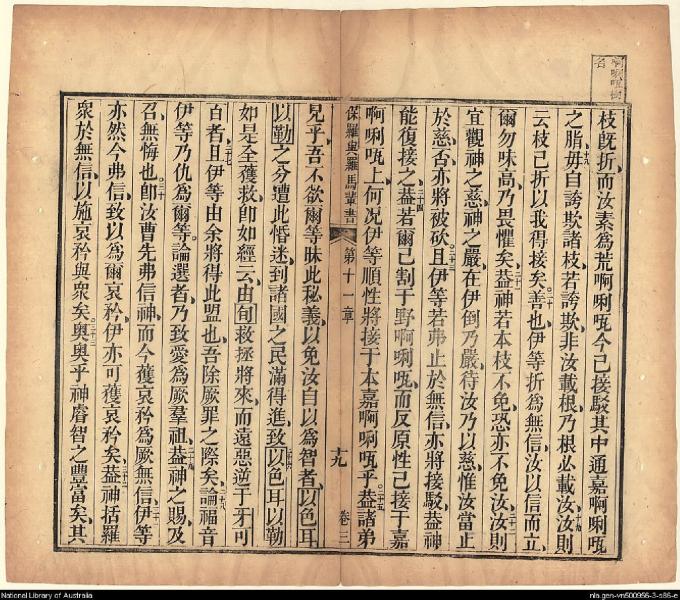 啊唎咓樹名
枝旣折而汝素爲荒啊唎咓今已接駁其中通嘉啊唎咓
之脂毋自誇欺諸枝若誇欺非汝載根乃根必載汝汝則
云枝已折以我得接矣善也伊等折爲無信汝以信而立
爾勿味高乃畏懼矣葢神若本枝不免恐亦不免汝汝則
宜觀神之慈神之嚴在伊倒乃嚴待汝乃以慈惟汝當止
於慈否亦將被砍且伊等若弗止於無信亦將接駁葢神
能復接之葢若爾已割于野啊唎咓而反原性已接于嘉
啊唎咓上何况伊等順性將接于本嘉啊唎咓乎葢諸弟
保羅與羅馬輩書 第十一章 十九 卷三
見乎吾不欲爾等昧此秘義以免汝自以爲智者以色耳
以勒之分遭此惛迷到諸國之民滿得進致以色耳以勒
如是全獲救卽如經云由旬救拯將來而遠惡逆于牙可
百者且伊等由余將得此盟也吾除厥罪之際矣論福音
伊等乃仇爲爾等論選者乃致愛爲厥羣祖葢神之賜及
召無悔也卽汝曹先弗信神而今獲哀矜爲厥無信伊等
亦然今弗信致以爲爾哀矜伊亦可獲哀矜矣葢神括羅
衆於無信以施哀矜與衆矣奧奧乎神睿智之豐富矣其
National Library of Australia
nla.gen-vn500956-3-s86-e